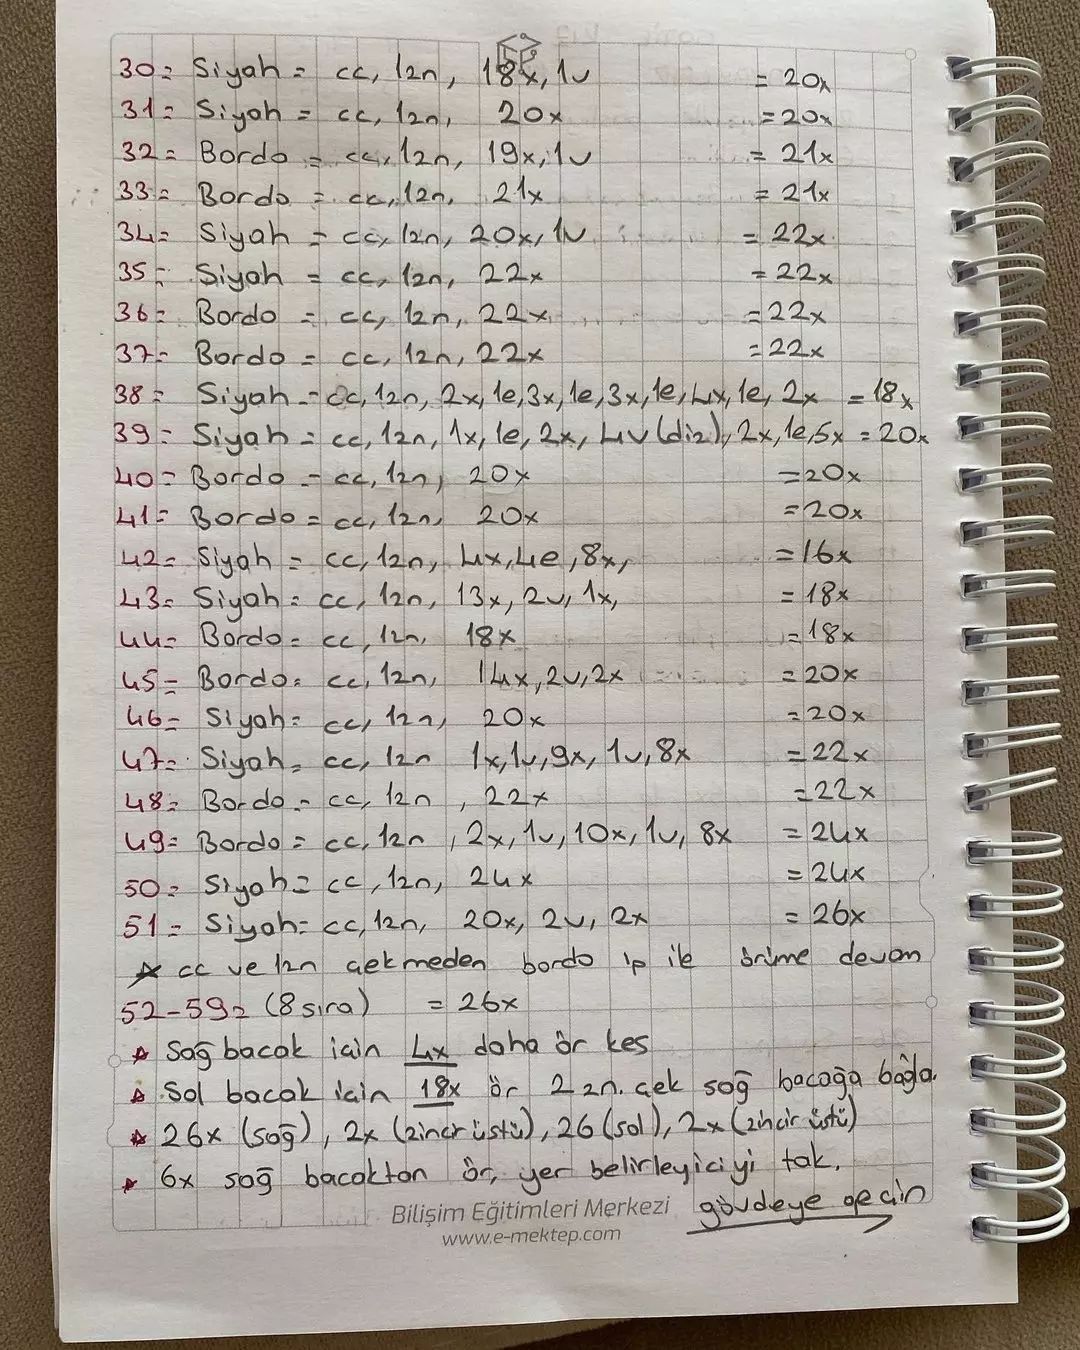 30= Siyah = cc, 12n, 18x, 1v = 20x
31= Siyah = cc, 12n, 20x = 20x
32= Bordo = cc, 12n, 19x, 1v = 21x
33= Bordo = cc, 12n, 21x = 21x
34= Siyah = cc, 12n, 20x, 1v = 22x
35= Siyah = cc, 12n, 22x = 22x
36= Bordo = cc, 12n, 22x = 22x
37= Bordo = cc, 12n, 22x = 22x
38= Siyah = cc, 12n, 2x, 1e, 3x, 1e, 3x, 1e, 4x, 1e, 2x = 18x
39= Siyah = cc, 12n, 1x, 1e, 2x, 4v (diz), 2x, 1e, 5x = 20x
40= Bordo = cc, 12n, 20x = 20x
41= Bordo = cc, 12n, 20x = 20x
42= Siyah = cc, 12n, 4x, 4e, 8x, = 16x
43= Siyah = cc, 12n, 13x, 2v, 1x, = 18x
44= Bordo = cc, 12n, 18x = 18x
45= Bordo = cc, 12n, 14x, 2v, 2x = 20x
46= Siyah = cc, 12n, 20x = 20x
47= Siyah = cc, 12n 1x, 1v, 9x, 1v, 8x = 22x
48= Bordo = cc, 12n, 22x = 22x
49= Bordo = cc, 12n, 2x, 1v, 10x, 1v, 8x = 24x
50= Siyah = cc, 12n, 24x = 24x
51= Siyah = cc, 12n, 20x, 2v, 2x = 26x
☆ cc ve 12n çekmeden bordo ip ile örüme devam
52-59= (8 sıra) = 26x
☆ Sağ bacak için 4x daha ör kes
☆ Sol bacak için 18x ör 2 zn. çek sağ bacağa bağla.
☆ 26x (sağ), 2x (zincir üstü), 26 (sol), 2x (zincir üstü)
☆ 6x sağ bacaktan ör, yer belirleyiciyi tak.
gövdeye geçin
Bilişim Eğitimleri Merkezi
www.e-mektep.com